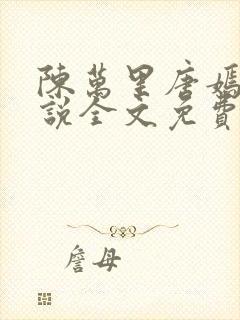 陳萬里唐嫣
說全文免費
詹母